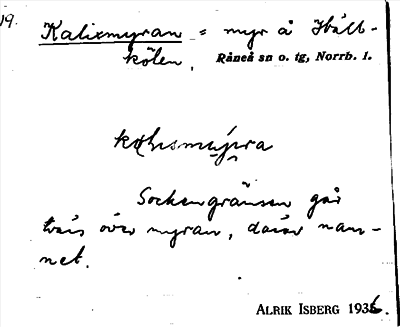 19.
Kalixmyran = myr å Håll-
kölen. Råneå sn o. tg, Norrb. l.
Sockengränsen går
tvärs över myran, därav nam-
net.
ALRIK ISBERG 1936.